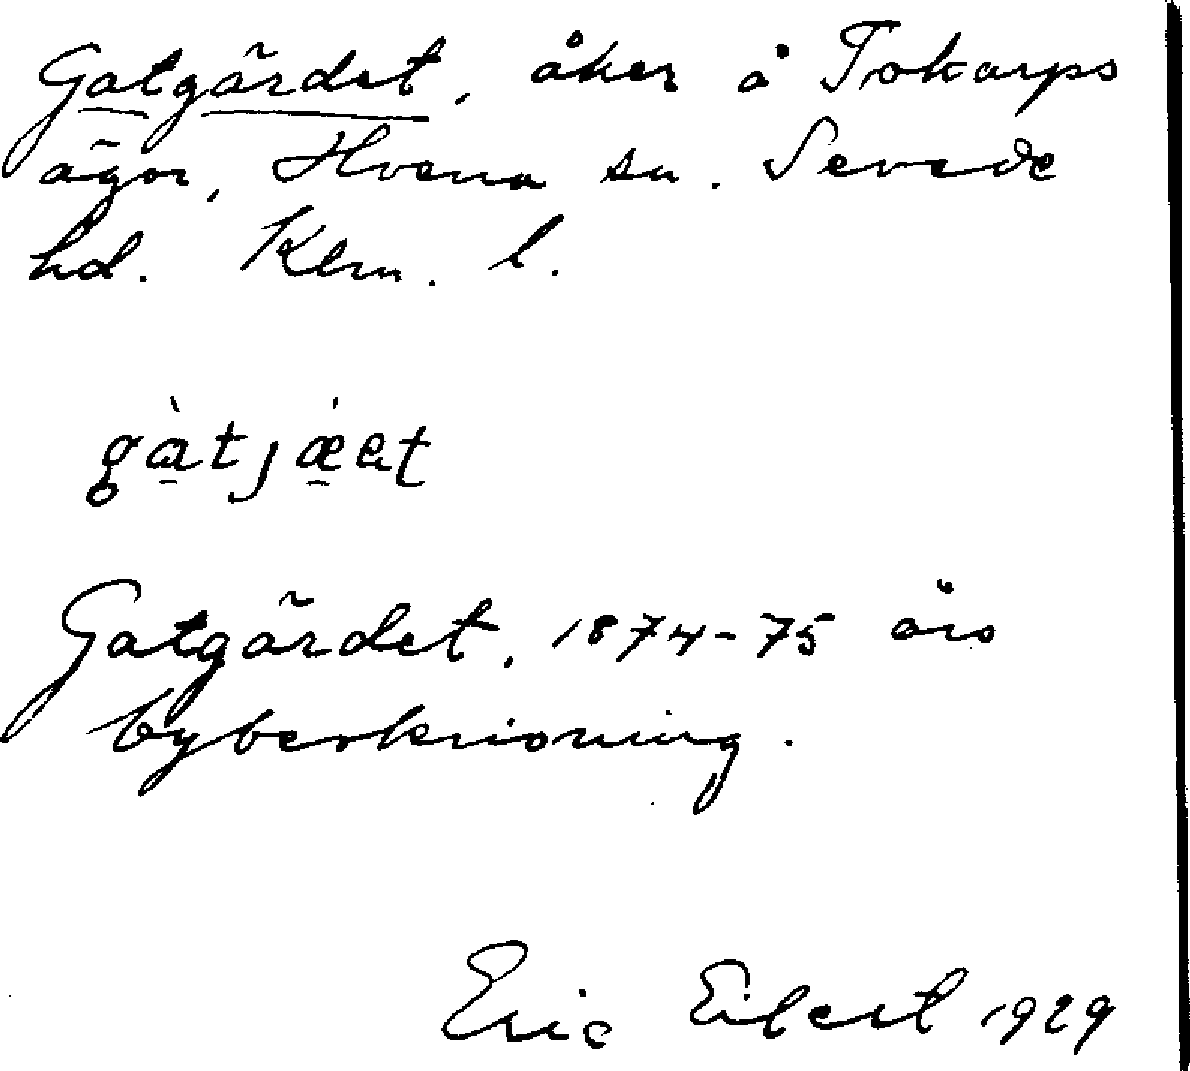 Gatgärdet, åker å Tokarps
ägor, Hvena sn. Sevede
hd. Klm. l.
Gatgärdet, 1874-75 års
bybeskrivning.
Eric Eilert 1929